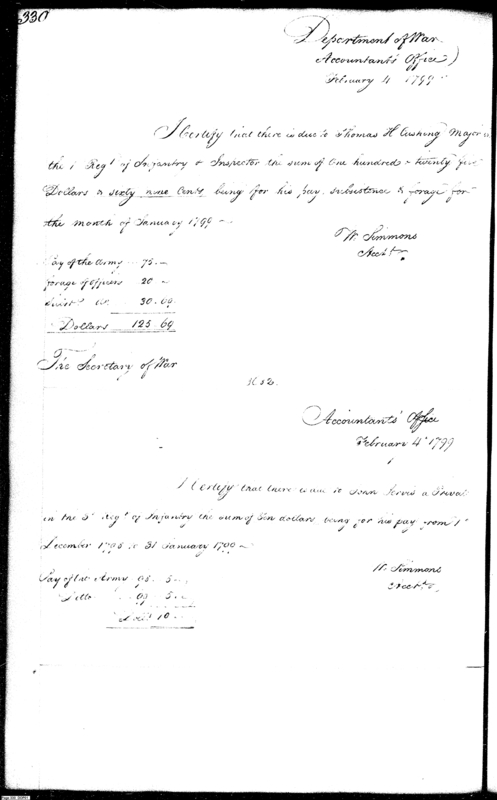 330
Department of War
Accountants' Office)
February 4 1799
I Certify that there is due to Thomas H Cushing Major in
the 1 Regt of Infantry & Inspector the sum of One hundred & twenty five
Dollars & sixty nine Cents being for his pay, subsistence & forage for
the month of January 1799
W. Simmons
Acctt.
Pay of the Army 75.
forage of officers 20
30.69
Dollars 125 69
The Secretary of War
Accountants' Office
February 4 1799
I Certify that there is due to John a Privat
in the 3d Regt of Infantry the sum of Ten dollars being for his pay from 1st
December 1798 to 31 January 1799
W. Simmons
Acctt.
Pay of the Army 98. 5
Ditto 99 5
10